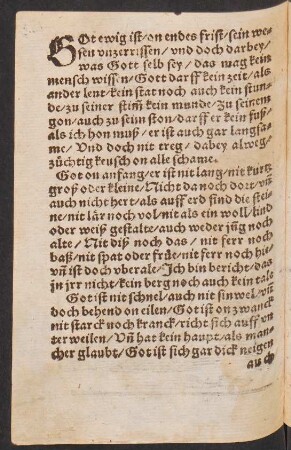 GOt ewig ist / on endes frist / sein we-
sen vnzerrissen / vnd doch darbey /
was Gott selb sey / das mag kein
mensch wissen / Gott darff kein zeit / als
ander lent / kein stat noch auch kein stun-
de / zu seiner stim̃ kein munde / Zu seinem
gon / auch zu seim ston / darff er kein fuß /
als ich hon muß / er ist auch gar langsa-
me / Vnd doch nit treg / dabey alweg /
züchtig keusch on alle schame.
Got on anfang / er ist nit lang / nit kurtz
groß oder kleine / Nicht da noch dort / vñ
auch nicht hert / als auff erd sind die stei-
ne / nit lär noch vol / nit als ein woll / lind
oder weiß gestalte / auch weder jũg noch
alte / Nit diß noch das / nit ferr noch
baß / nit spat oder frůe / nit ferr noch hie /
vñ ist doch vberale / Ich bin bericht / das
jn jrr nicht / kein berg noch auch kein tale
Got ist nit schnel / auch nit sinwel / vñ
doch behend on eilen / Got ist on zwanck
nit starck noch kranck / richt sich auff vn
ter weilen / Vñ hat kein haupt / als man-
cher glaubt / Got ist sich gar dick neigen
auch